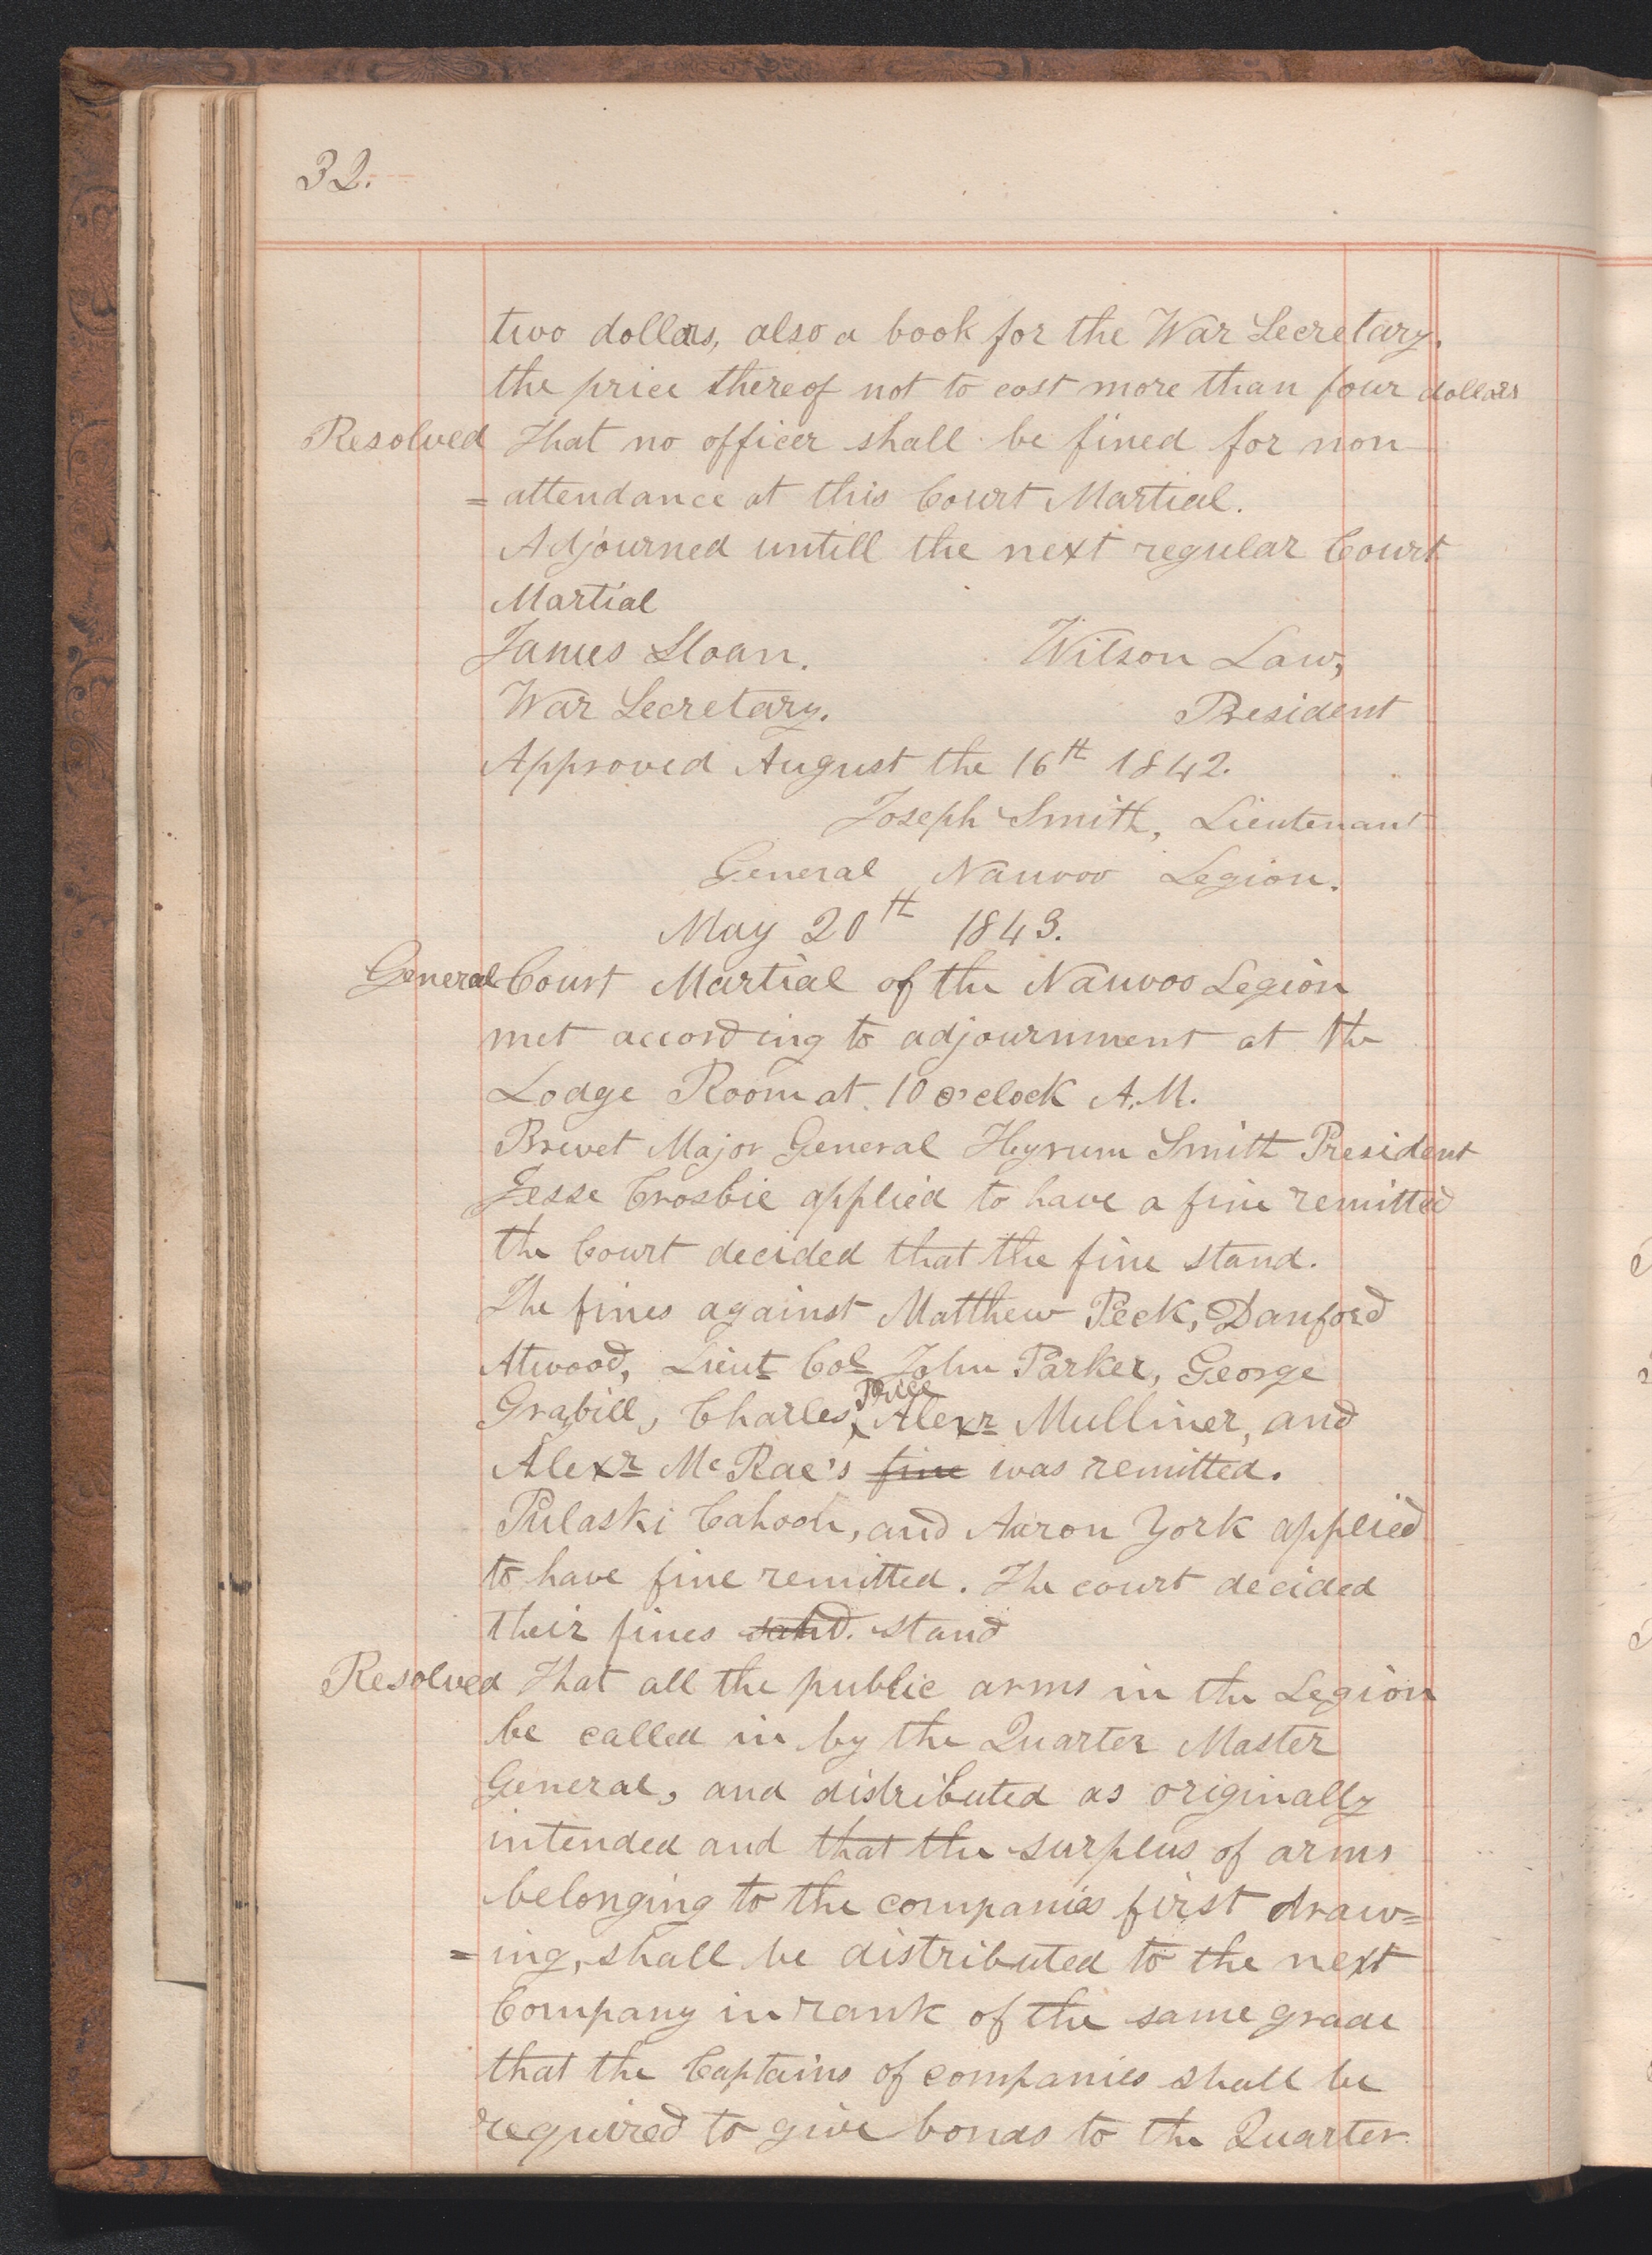 32.
two dollars, also a book for the War Secretary.
the price thereof not to cost more than four dollars
Resolved That no officer shall be fined for non
= attendance at this Court Martial.
Adjourned untill the next regular Court
Martial
James Sloan. Wilson Law,
War Secretary. President
Approved August the 16th 1842.
Joseph Smith, Lieutenant
General Nauvoo Legion.
May 20th 1843.
General Court Martial of the Nauvoo Legion
met according to adjournment at the
Lodge Room at 10 o'clock A.M.
Brevet Major General Hyrum Smith President
Jesse Crosbie applied to have a fine remitted
the Court decided that the fine stand.
The fines against Matthew Peck, Danford
Atwood, Lieut Col John Parker, George
Grabill, Charles Price Alexr Mulliner, and
Alexr McRae's fine was remitted.
Pulaski Cahoon, and Aaron York applied
to have fine remitted. The court decided
their fines satnd. stand
Resolved That all the public arms in the Legion
be called in by the Quarter Master
General, and distributed as originally
intended and that the surplus of arms
belonging to the companies first draw=
=ing, shall be distributed to the next
Company in rank of the same grade
that the Captains of companies shall be
required to give bonds to the Quarter